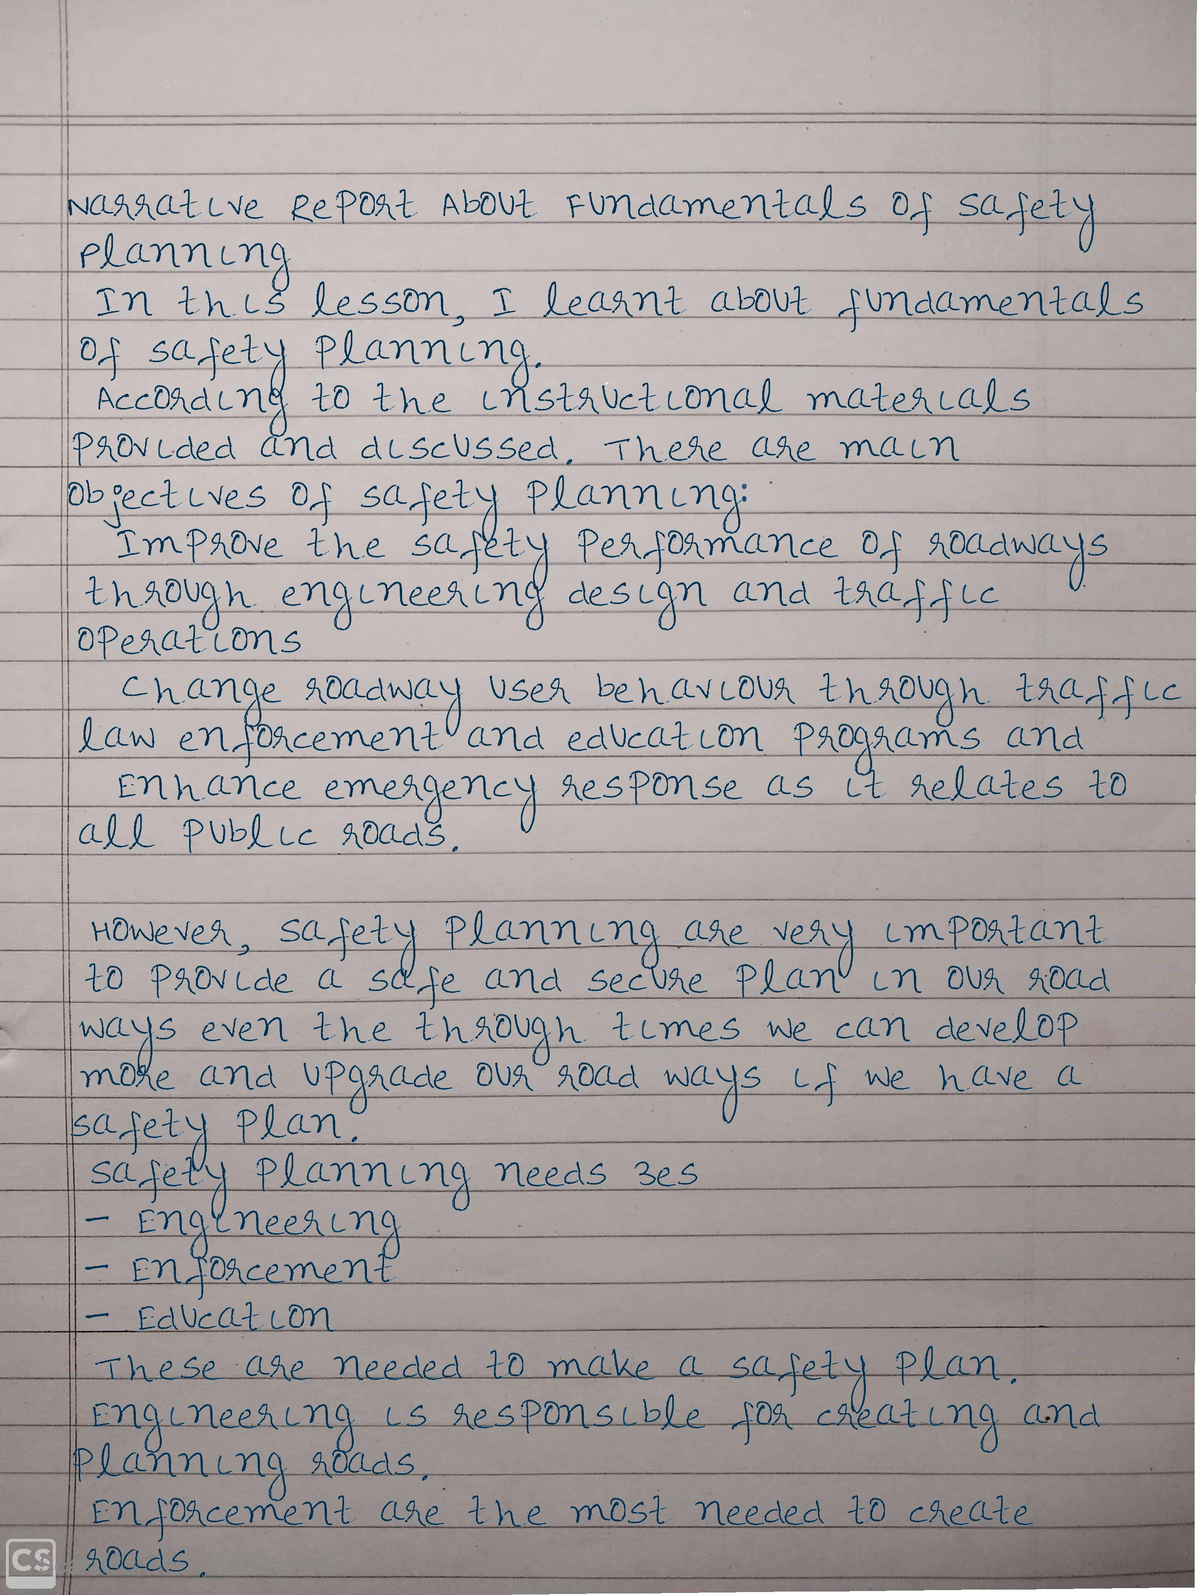 Narrative Report About Fundamentals of safety
planning
In this lesson, I learnt about fundamentals
of safety planning.
According to the instructional materials
provided and discussed. There are main
objectives of safety planning:
Improve the safety performance of roadways
through engineering design and traffic
operations
Change roadway user behaviour through traffic
law enforcement and education programs and
Enhance emergency response as it relates to
all public roads.
However, safety planning are very important
to provide a safe and secure plan in our road
ways even the through times we can develop
more and upgrade our road ways if we have a
safety plan.
safety planning needs 3es
- Engineering
- Enforcement
- Education
These are needed to make a safety plan.
Engineering is responsible for creating and
planning roads.
Enforcement are the most needed to create
roads.
CS